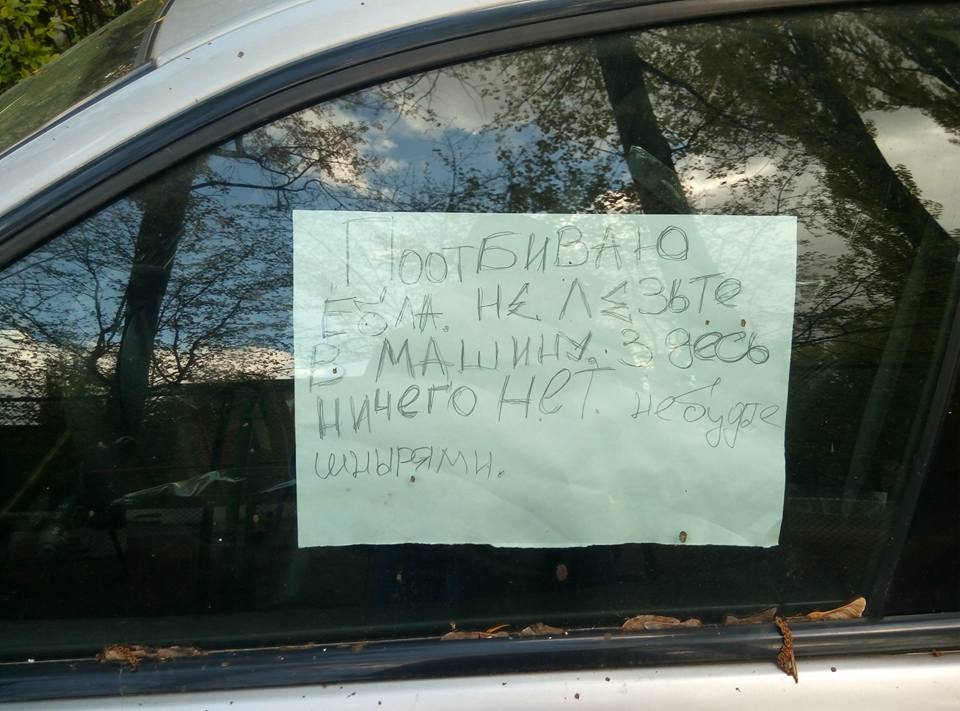 ПООТБИВАЮ
ЕБЛА. НЕ ЛЕЗЬТЕ
В МАШИНУ. Здесь
НИЧЕГО НЕТ. небудте
шнырями.